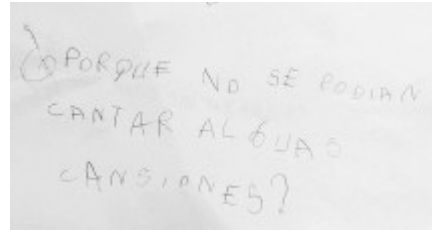 ¿PORQUE NO SE PODIAN
CANTAR ALGUAS
CANSIONES?